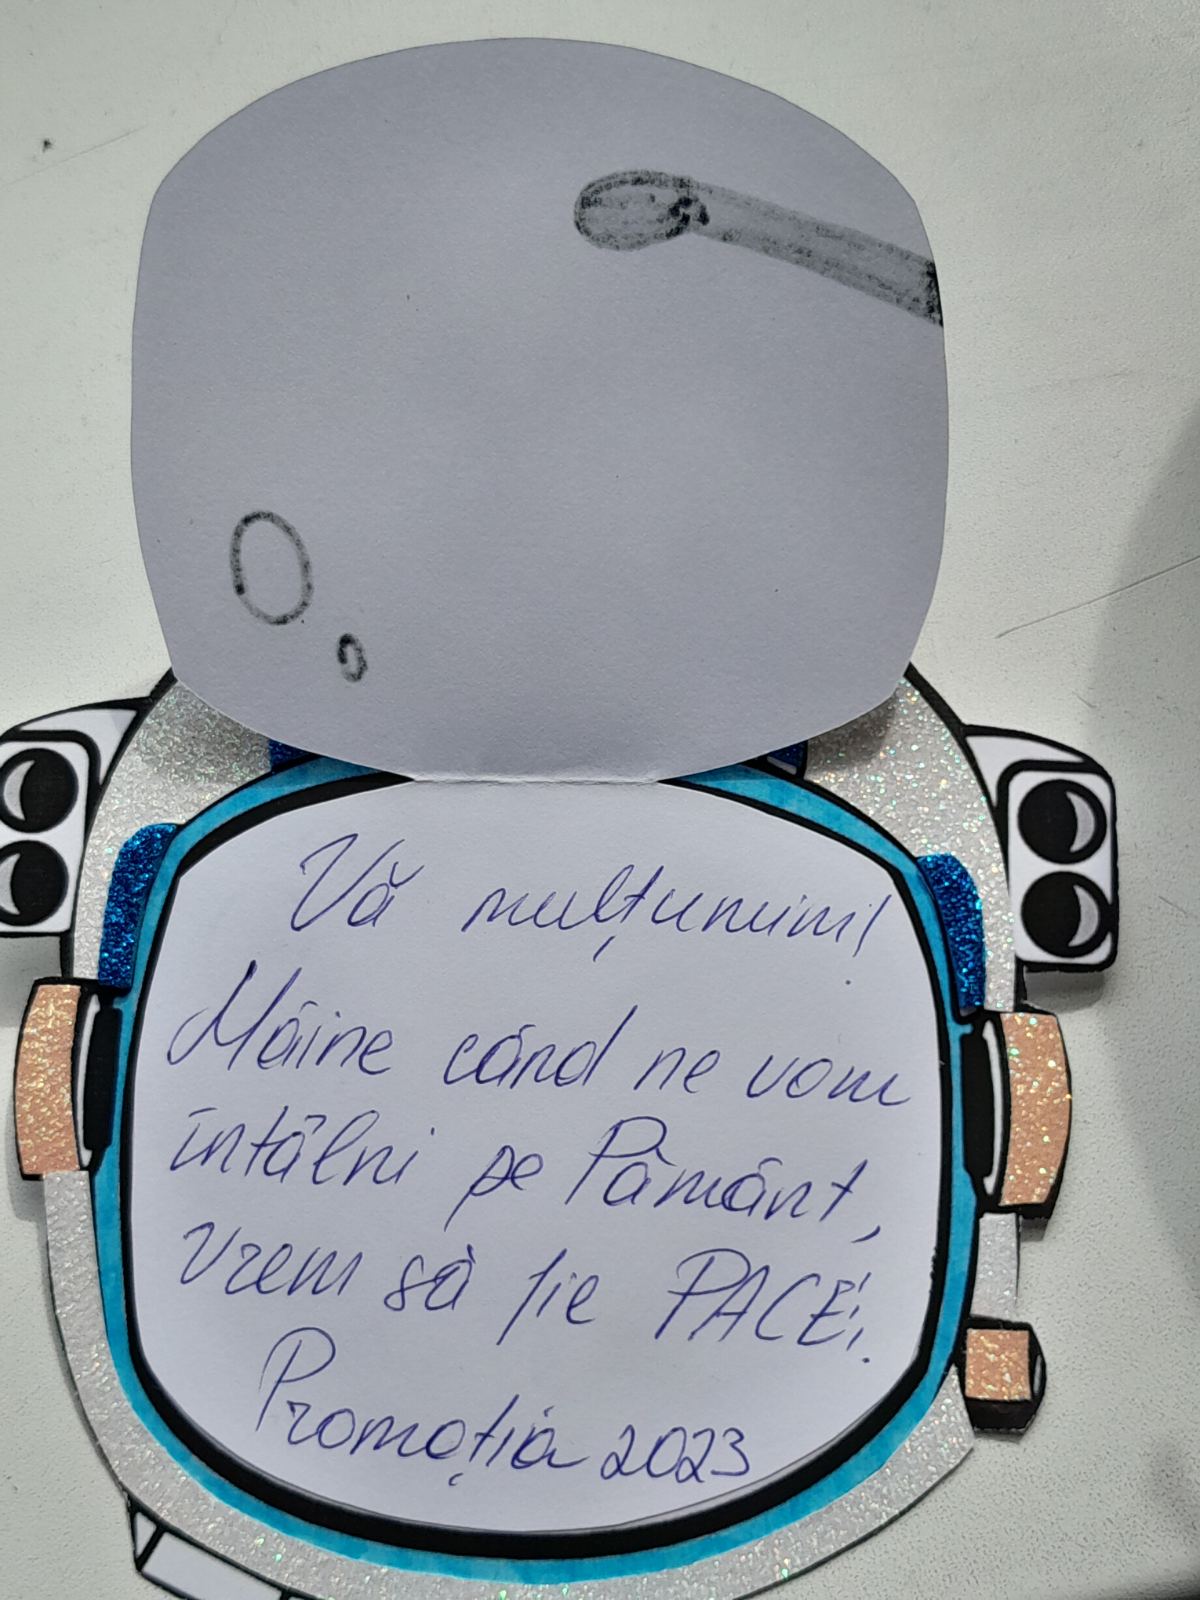 Vă mulțumim!
Mâine când ne vom
întâlni pe Pământ,
vrem să fie PACE!
Promoția 2023